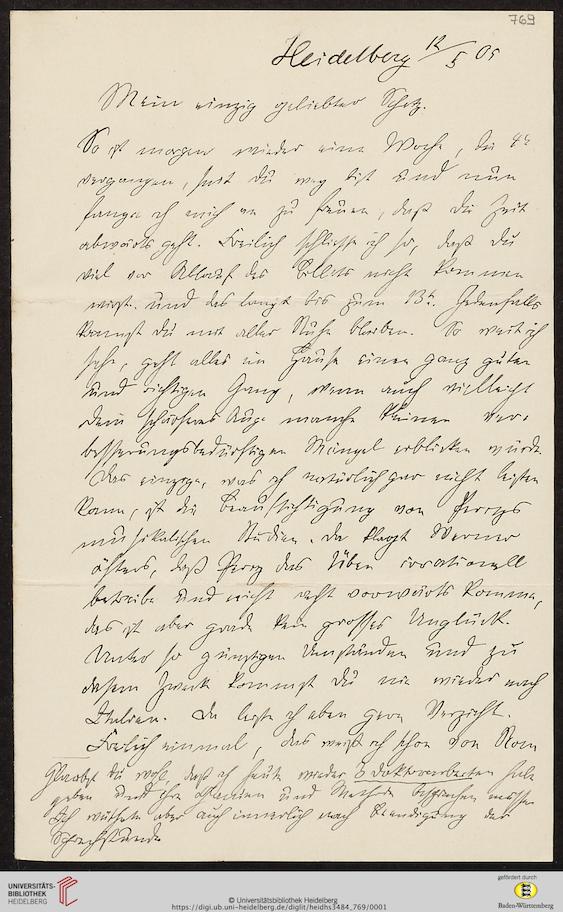 769
Heidelberg 12/5 05
Mein einzig geliebter Schatz.
So ist morgen wieder eine Woche, die 4te
vergangen, seit du weg bist und nun
fange ich mich an zu freuen, daß die Zeit
abwärts geht. Freilich schließe ich so, daß du
viel vor Ablauf des Billets nicht kommen
wirst. und das langt bis zum 13t. Jedenfalls
kannst du mit aller Ruhe bleiben. So weit ich
sehe, geht alles im Hause einen ganz guten
und richtigen Gang, wenn auch vielleicht
dein schärferes Auge manche kleinen ver-
besserungsbedürftigen Mängel erblicken würde.
Das einzige, was ich natürlich gar nicht leisten
kann, ist die Beaufsichtigung von
musikalischen Studien. Da klagt Werner
öfters, daß das Üben irrationell
betreibe und nicht recht vorwärts komme,
das ist aber grade kein großes Unglück.
Unter so günstigen Umständen und zu
diesem Zweck kommst du nie wieder nach
Italien. Da leiste ich eben gern Verzicht.
Freilich einmal, das weiß ich schon von Rom
Glaubst du wohl, daß ich heute wieder 3 Doktorarbeiten habe
geben und ihre und Methode besprechen müssen
Ich wüthete aber auch innerlich nach Beendigung der
Sprechstunde
UNIVERSITÄTS-
BIBLIOTHEK
HEIDELBERG
© Universitätsbibliothek Heidelberg
https://digi.ub.uni-heidelberg.de/diglit/heidhs3484_769/0001
gefördert durch
Baden-Württemberg